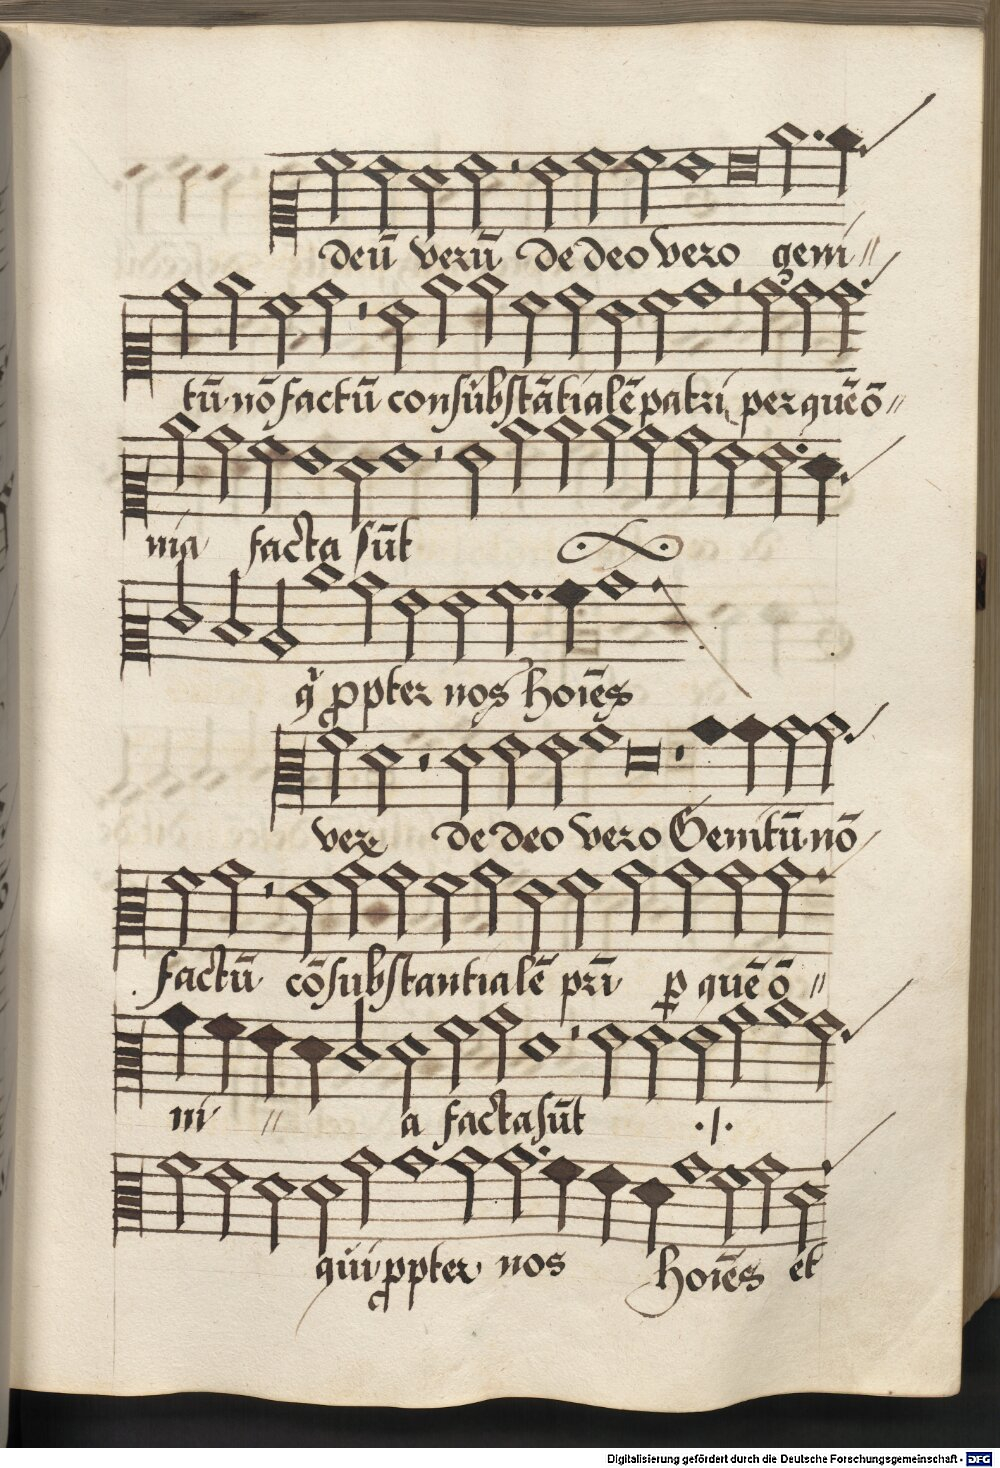 deū verū de deo vero geni〃
tū nō factū consubstātialē patri per quē ō〃
nia facta sūt
q̄ ꝓpter nos hoiēs
ver de deo vero Genitū nō
factū cōsubstantialē pri ꝑ quē ō〃
ni〃 a facta sūt ·/·
qui ꝓpter nos hoiēs et
Digitalisierung gefördert durch die Deutsche Forschungsgemeinschaft - DFG